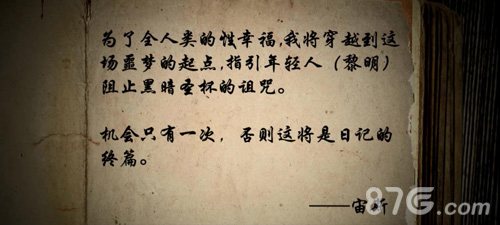 为了全人类的性幸福,我将穿越到这
场噩梦的起点,指引年轻人（黎明）
阻止黑暗圣杯的诅咒。
机会只有一次，否则这将是日记的
终篇。
——宙斯
87G.com手游网